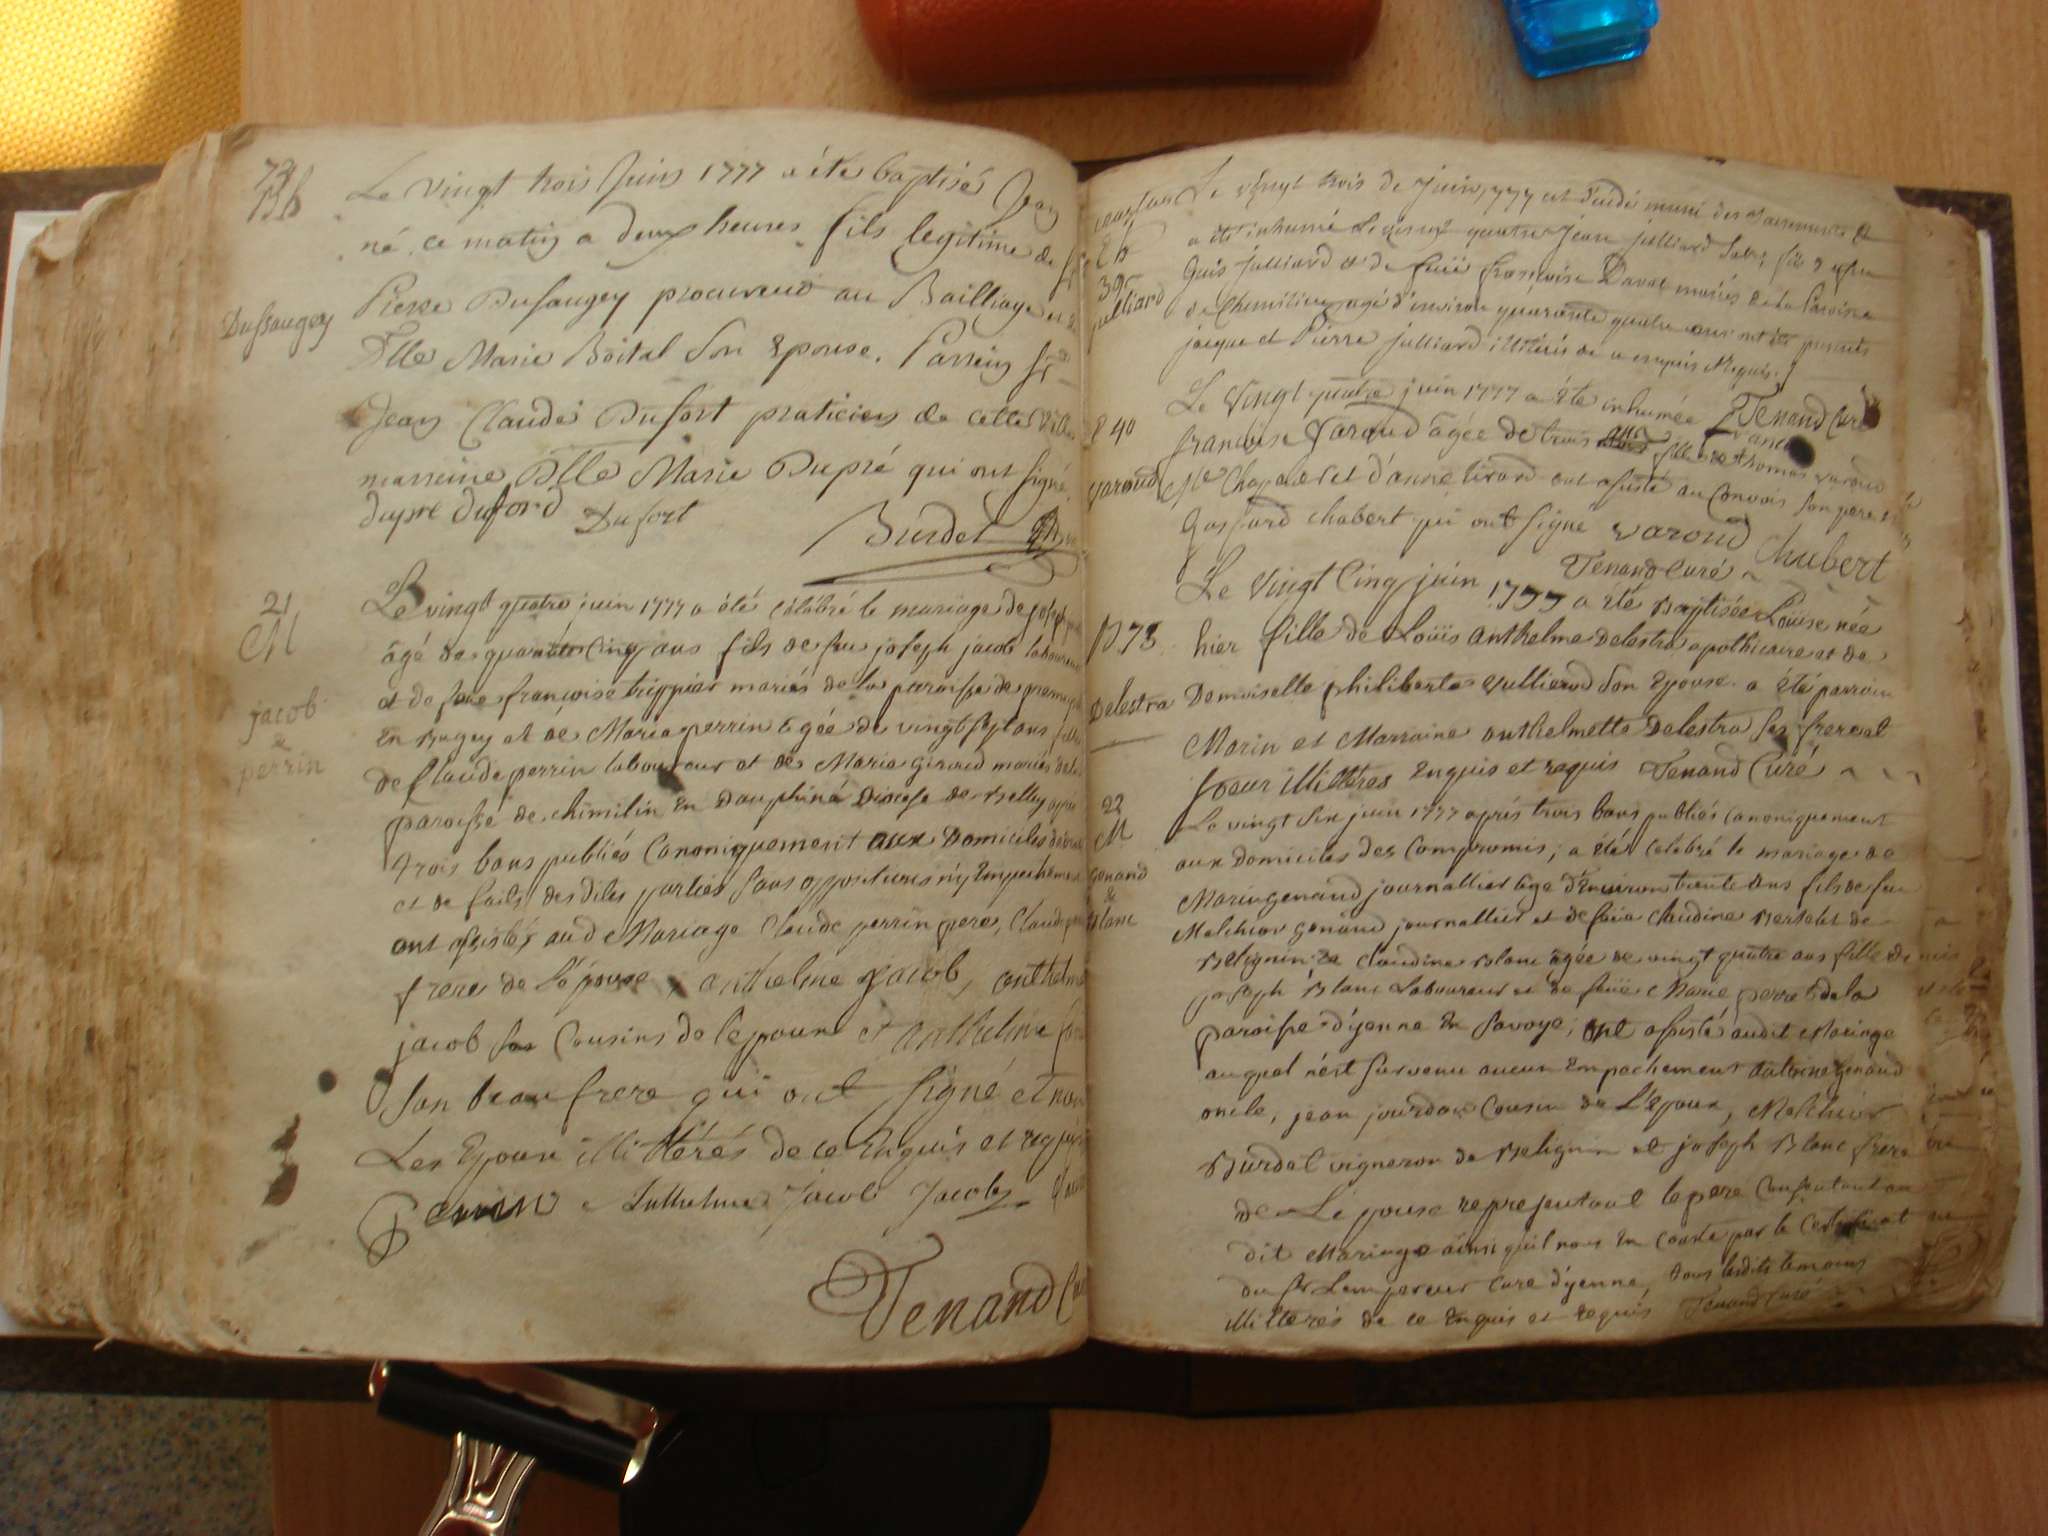 Le vingt trois Juin 1777 a été baptisé Jean
né ce matin a deux heures fils legitime de
Dussaugey
Pierre Dusaugey procureur au Bailliage et de
Dlle Marie Boital Son Epouse. Parrein Sr
Jean Claude Dufort praticien de cette ville
marreine Dlle Marie Dupré qui ont signé
dupre duford Dufort
Burdet
21
M
jacob
&
perrin
Le vingt quatre juin 1777 a été célébré le mariage de joseph
âgé de quarante cinq ans fils de feu joseph jacob laboureur
et de feue françoise trippier mariés de la paroisse de
En Bugey et de Marie perrin agée de vingt sept ans fille
de Claude perrin laboureur et de Marie giroud mariés de la
paroisse de chimilin En dauphiné Diocese de Belley après
trois bans publiés Canoniquement aux Domiciles de
et de faits desdites parties sans oppositions ny Empechement
ont assistés aud Mariage Claude perrin pere, Claude
frere de l'épouse, anthelme jacob, anthelme
jacob Cousins de l'epoux et anthelme
Son beaufrere qui ont signé et non
Les Epoux illittérés de ce Enquis et requis
Perrin Anthelme Jacob Jacob
Tenand Curé
Le vingt trois de Juin 1777 est décédé muni des Sacrements et
a été inhumé le vingt quatre jean julliard fils
39
julliard
julliard et de feüe françoise Davat mariés de la Paroisse
de Chimilin agé d'environ quarante quatre ans ont été presents
jacque et Pierre julliard illitérés de ce enquis et requis
Tenand Curé
Le Vingt quatre juin 1777 a été inhumée
40
varoud
francoise Varoud âgée de trois ans fille de thomas varoud
et d'anne tirard ont assisté au Convois Son pere et
Gaspard chabert qui ont signé varoud Chabert
Tenand Curé
Le Vingt Cinq juin 1777 a été Baptisée Loüise née
B 73
hier fille de Loüis anthelme Delestra apothicaire et de
Delestra
Demoiselle philiberte Julliard Son Epouse a été parrain
Marin et Marraine anthelmette Delestra ses frere et
Soeur illittérés Enquis et requis Tenand Curé
22
M
genand
&
blanc
Le vingt Six juin 1777 après trois bans publiés canoniquement
aux Domiciles des Compromis, a été celebré le mariage de
Marin genand journallier âgé d'Environ trente ans fils de feu
Melchior genand journallier et de feüe Claudine Bertolet de
Belignin Et Claudine Blanc âgée de vingt quatre ans fille de
joseph Blanc Laboureur et de feüe Marie perret de la
paroisse d'yenne En Savoye, ont assisté audit Mariage
auquel n'est survenu aucun Empechement antoine genand
oncle, jean jourdan Cousin de l'Epoux, Melchior
Burdet vigneron de Belignin et joseph Blanc frere
de l'Epouse representant le pere Consentant au
dit Mariage ainsi quil nous En Conste par le Certificat
du Sr Lempereur Curé d'yenne, tous lesdits temoins
illitterés de ce Enquis et Requis Tenand Curé